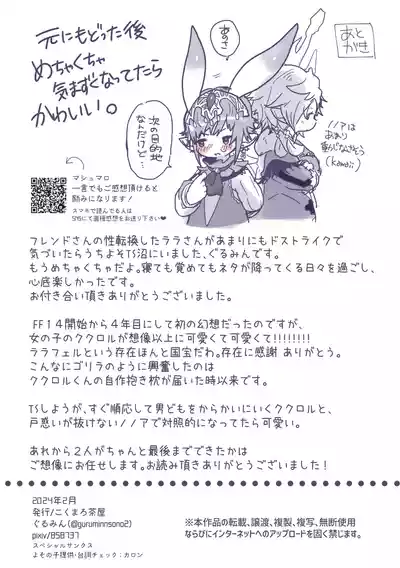 あとがき
元にもどった後
めちゃくちゃ
気まずくなってたら
かわいい。
あのさ
次の目的地
なんだけど…
ノノアは
あまり
(kawaii)
マシュマロ
一言でもご感想頂けると
励みになります!
スマホで読んでる人は
SNSにて直接感想をお送り下さい♥
フレンドさんの性転換したララさんがあまりにもドストライクで
気づいたらうちよそTS沼にいました、ぐるみんです。
もうめちゃくちゃだよ。寝ても覚めてもネタが降ってくる日々を過ごし、
心底楽しかったです。
お付き合い頂きありがとうございました。
FF14開始から4年目にして初の幻想だったのですが、
女の子のククロルが想像以上に可愛くて可愛くて!!!!!!!!
ララフェルという存在ほんと国宝だわ。存在に感謝 ありがとう。
こんなにゴリラのように興奮したのは
ククロルくんの自作抱き枕が届いた時以来です。
TSしようが、すぐ順応して男どもをからかいにいくククロルと、
戸惑いが抜けないノノアで対照的になってたら可愛い。
あれから2人がちゃんと最後までできたかは
ご想像にお任せします。お読み頂きありがとうございました!
2024年2月
発行/こくまろ茶屋
ぐるみん(@guruminnsono2)
pixiv/858737
スペシャルサンクス
よその子提供・台詞チェック:カロン
※本作品の転載、譲渡、複製、複写、無断使用
ならびにインターネットへのアップロードを固く禁じます。